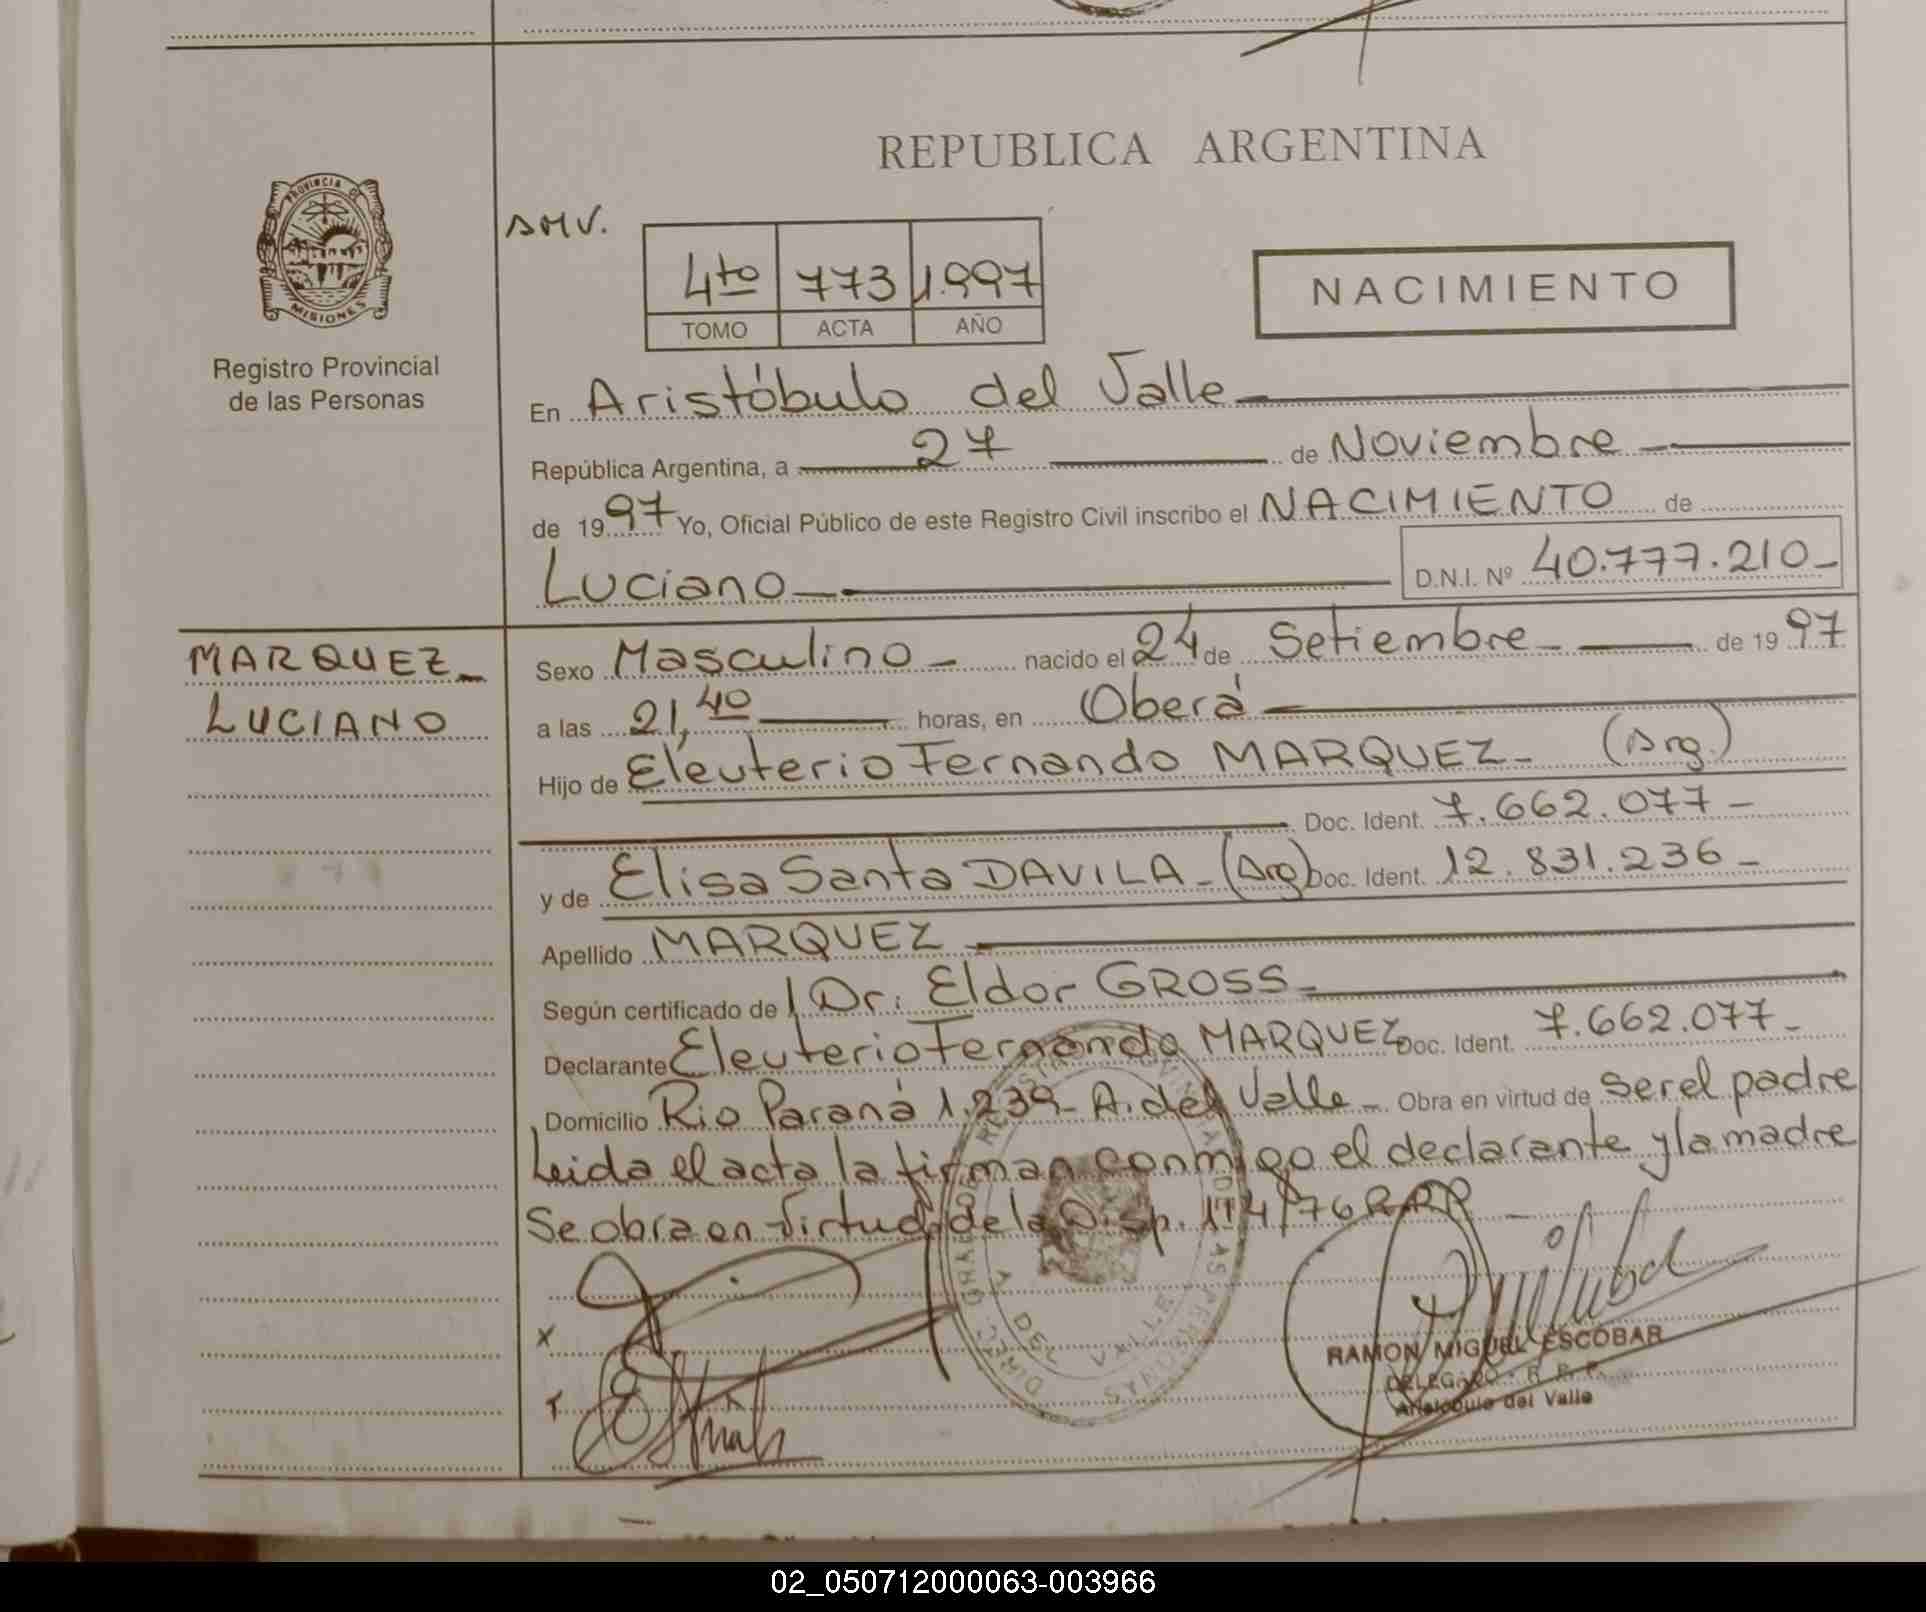 REPUBLICA ARGENTINA
PROVINCIA DE
MISIONES
Registro Provincial
de las Personas
4to 773 1.997
TOMO ACTA AÑO
NACIMIENTO
En Aristóbulo del Valle
República Argentina, a 27 de Noviembre
de 1997 Yo, Oficial Público de este Registro Civil inscribo el NACIMIENTO de
Luciano D.N.I. Nº 40.777.210
MARQUEZ
LUCIANO
Sexo Masculino nacido el 24 de Setiembre de 1997
a las 21,40 horas, en Oberá
Hijo de Eleuterio Fernando MARQUEZ (Arg.)
Doc. Ident. 7.662.077
y de Elisa Santa DAVILA (Arg) Doc. Ident. 12.831.236
Apellido MARQUEZ
Según certificado de Dr. Eldor GROSS
Declarante Eleuterio Fernando MARQUEZ Doc. Ident. 7.662.077
Domicilio Rio Paraná 1.239 A. del Valle Obra en virtud de ser el padre
Leida el acta la firman conmigo el declarante y la madre
Se obra en Virtud de la Disp. 114/76 RPP
X
T
A. DEL VALLE
RAMON MIGUEL ESCOBAR
DELEGADO - R. P. P.
Aristobulo del Valle
02_050712000063-003966